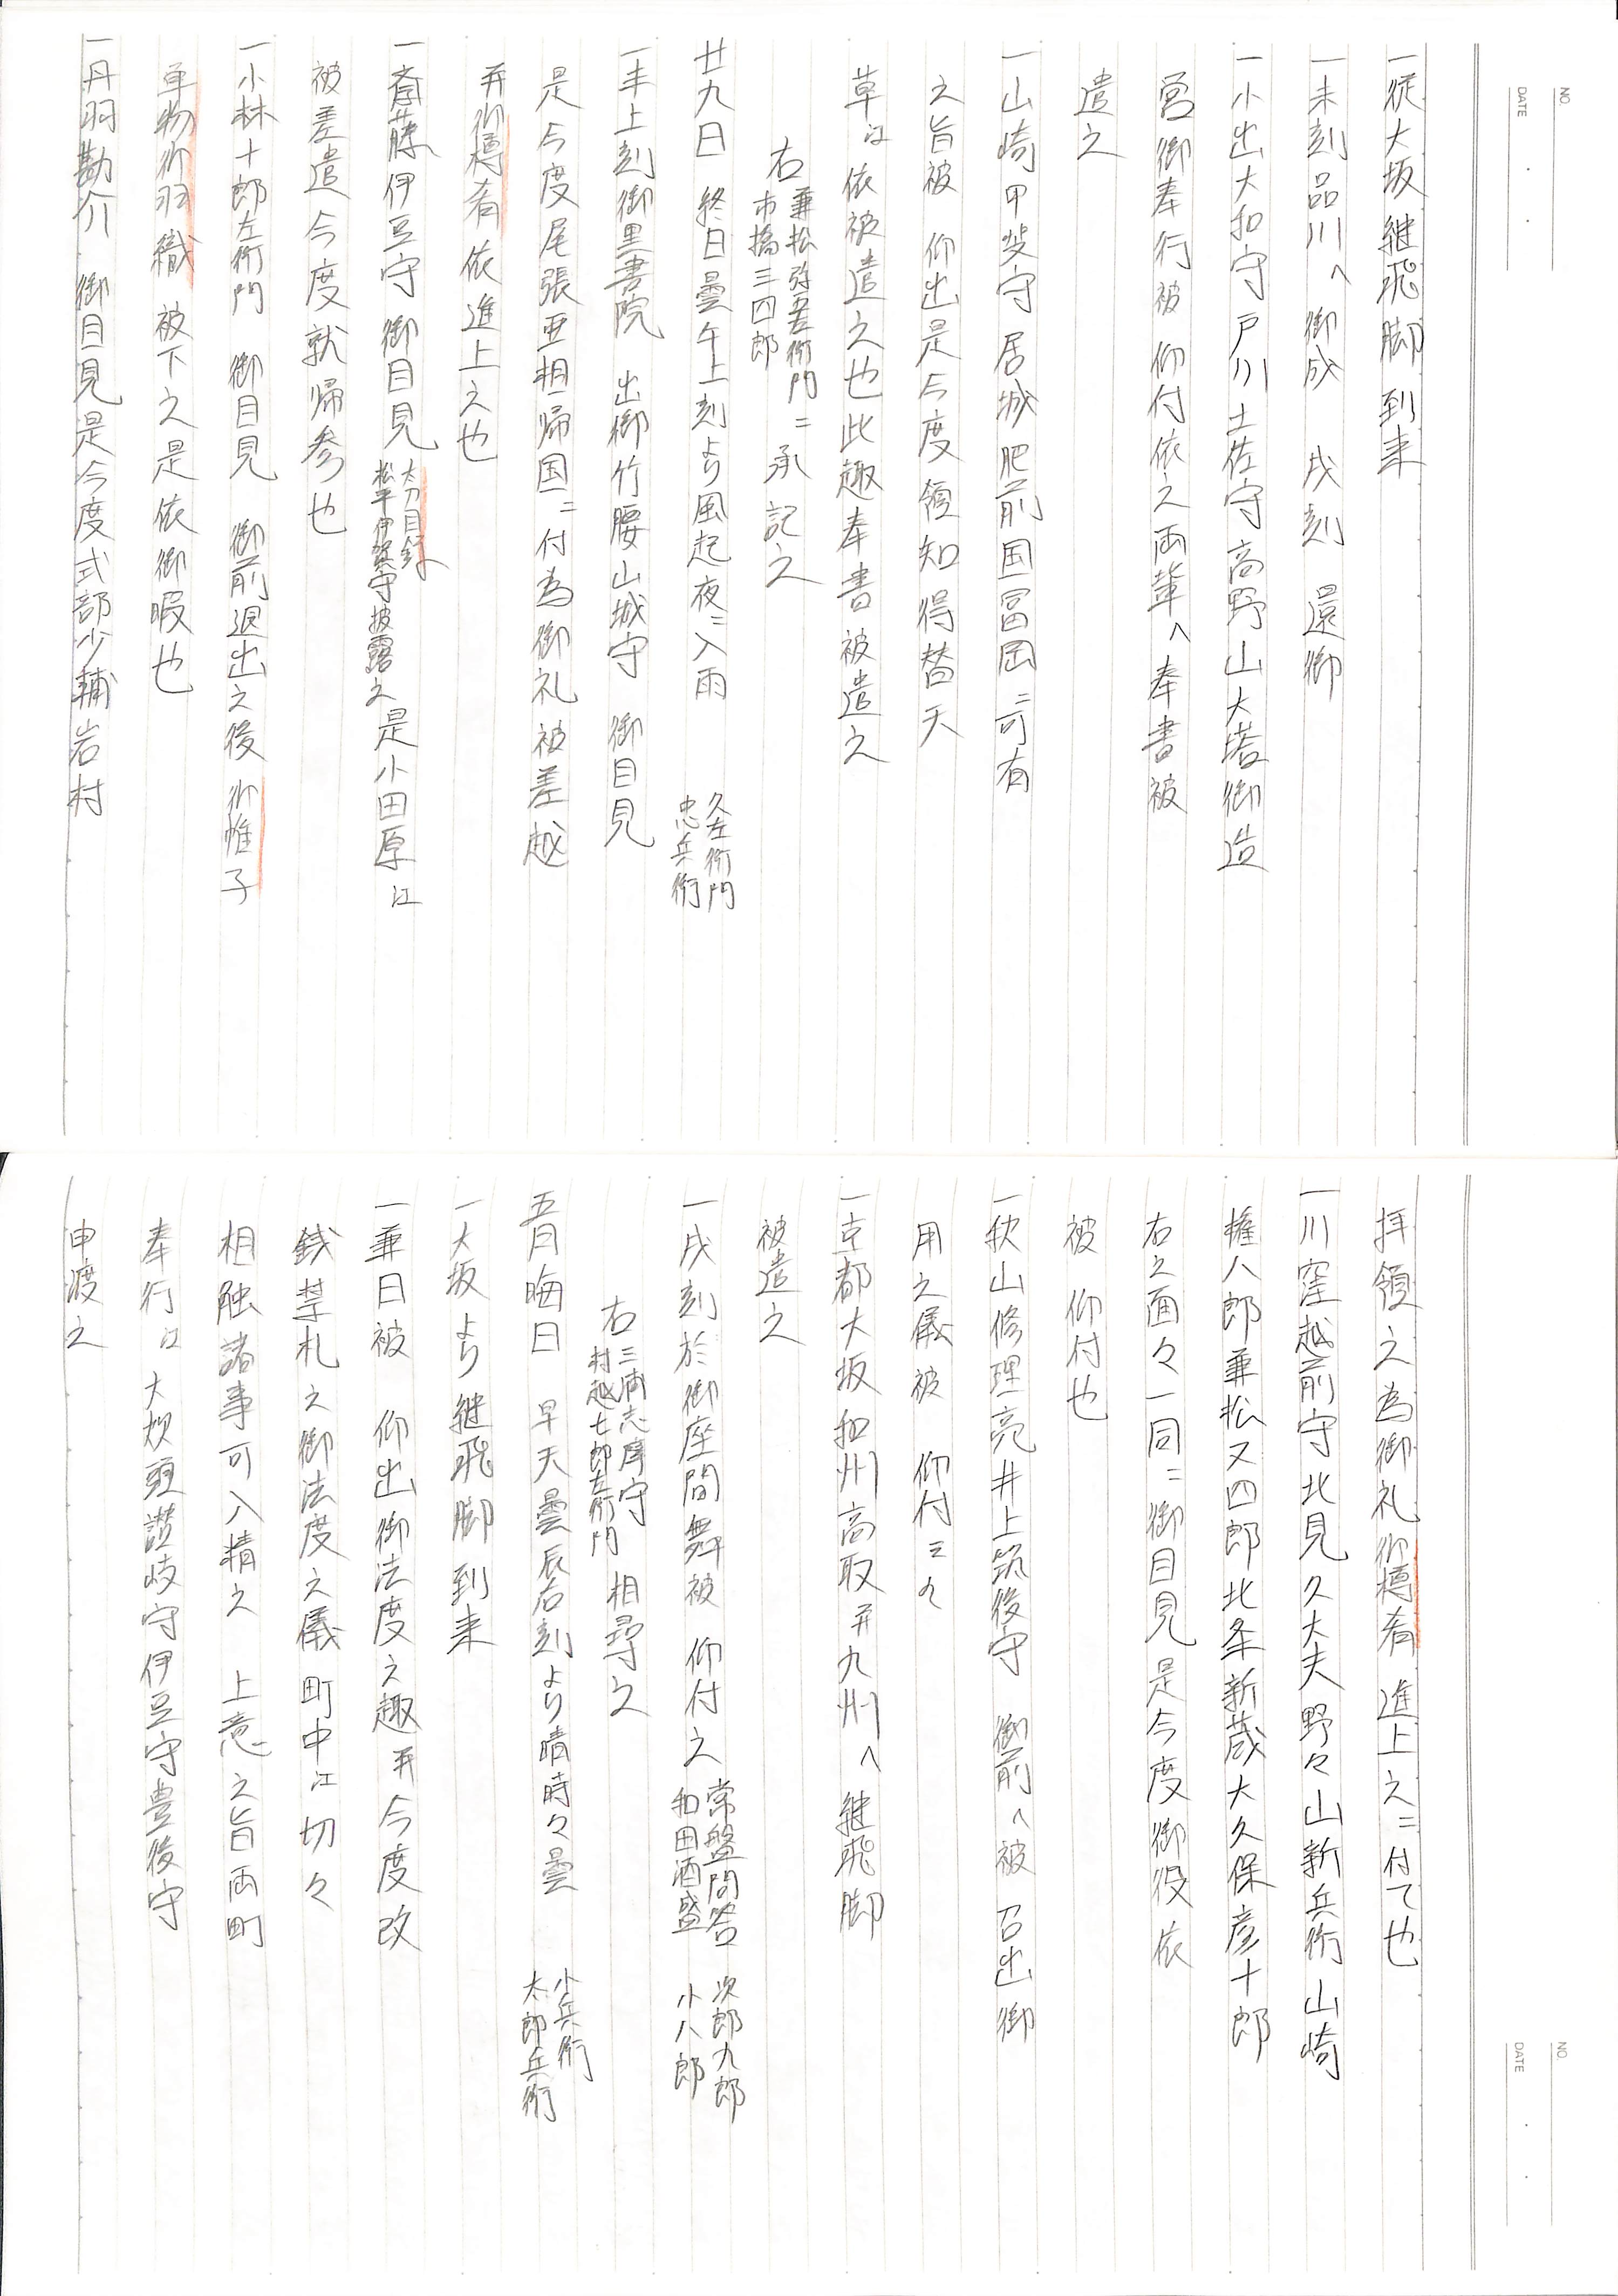 NO.
DATE
一従大坂継飛脚到来
一未刻品川へ 御成 戌刻 還御
一小出大和守戸川土佐守高野山大塔御造
営御奉行被 仰付依之両輩へ奉書被
遣之
一山崎甲斐守居城肥前国冨岡ニ可有
之旨被 仰出是今度領知得替天
草江依被遣之也此趣奉書被遣之
右 兼松弥五左衛門 市橋三四郎 ニ承記之
廿九日 終日曇午上刻より風起夜ニ入雨 久左衛門 忠兵衛
一未上刻御黒書院 出御竹腰山城守 御目見
是今度尾張亜相帰国ニ付為御礼被差越
并御樽肴依進上之也
一斎藤伊豆守 御目見 太刀目録 松平伊賀守披露之 是小田原江
被差遣今度就帰参也
一小林十郎左衛門 御目見 御前退出之後御帷子
単物御羽織被下之是依御暇也
一丹羽勘介 御目見是今度式部少輔岩村
NO.
DATE
拝領之為御礼御樽肴進上之ニ付て也
一川窪越前守北見久大夫野々山新兵衛山崎
権八郎兼松又四郎北条新蔵大久保彦十郎
右之面々一同ニ御目見是今度御役依
被 仰付也
一秋山修理亮井上筑後守 御前へ被 召出御
用之儀被 仰付云々
一京都大坂和州高取并九州へ継飛脚
被遣之
一戌刻於御座間舞被 仰付之 常盤問答 次郎九郎 和田酒盛 小八郎
右 三浦志摩守 村越七郎左衛門 相尋之
五月晦日 早天曇辰右刻より晴時々曇 小兵衛 太郎兵衛
一大坂より継飛脚到来
一兼日被 仰出御法度之趣并今度改
銭禁札之御法度之儀町中江切々
相触諸事可入精之 上意之旨両町
奉行江 大炊頭讃岐守伊豆守豊後守
申渡之